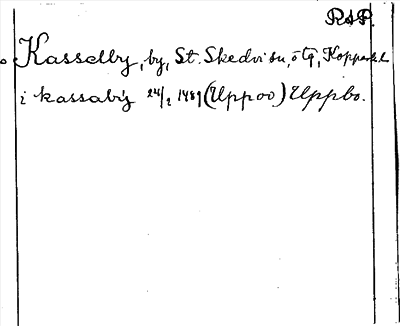 RAP.
Kasselby, by, St. Skedvi sn, ö Tg, Kopparb. l.
i kassabÿ 24/2 1489 (Uppoo) Uppbo.